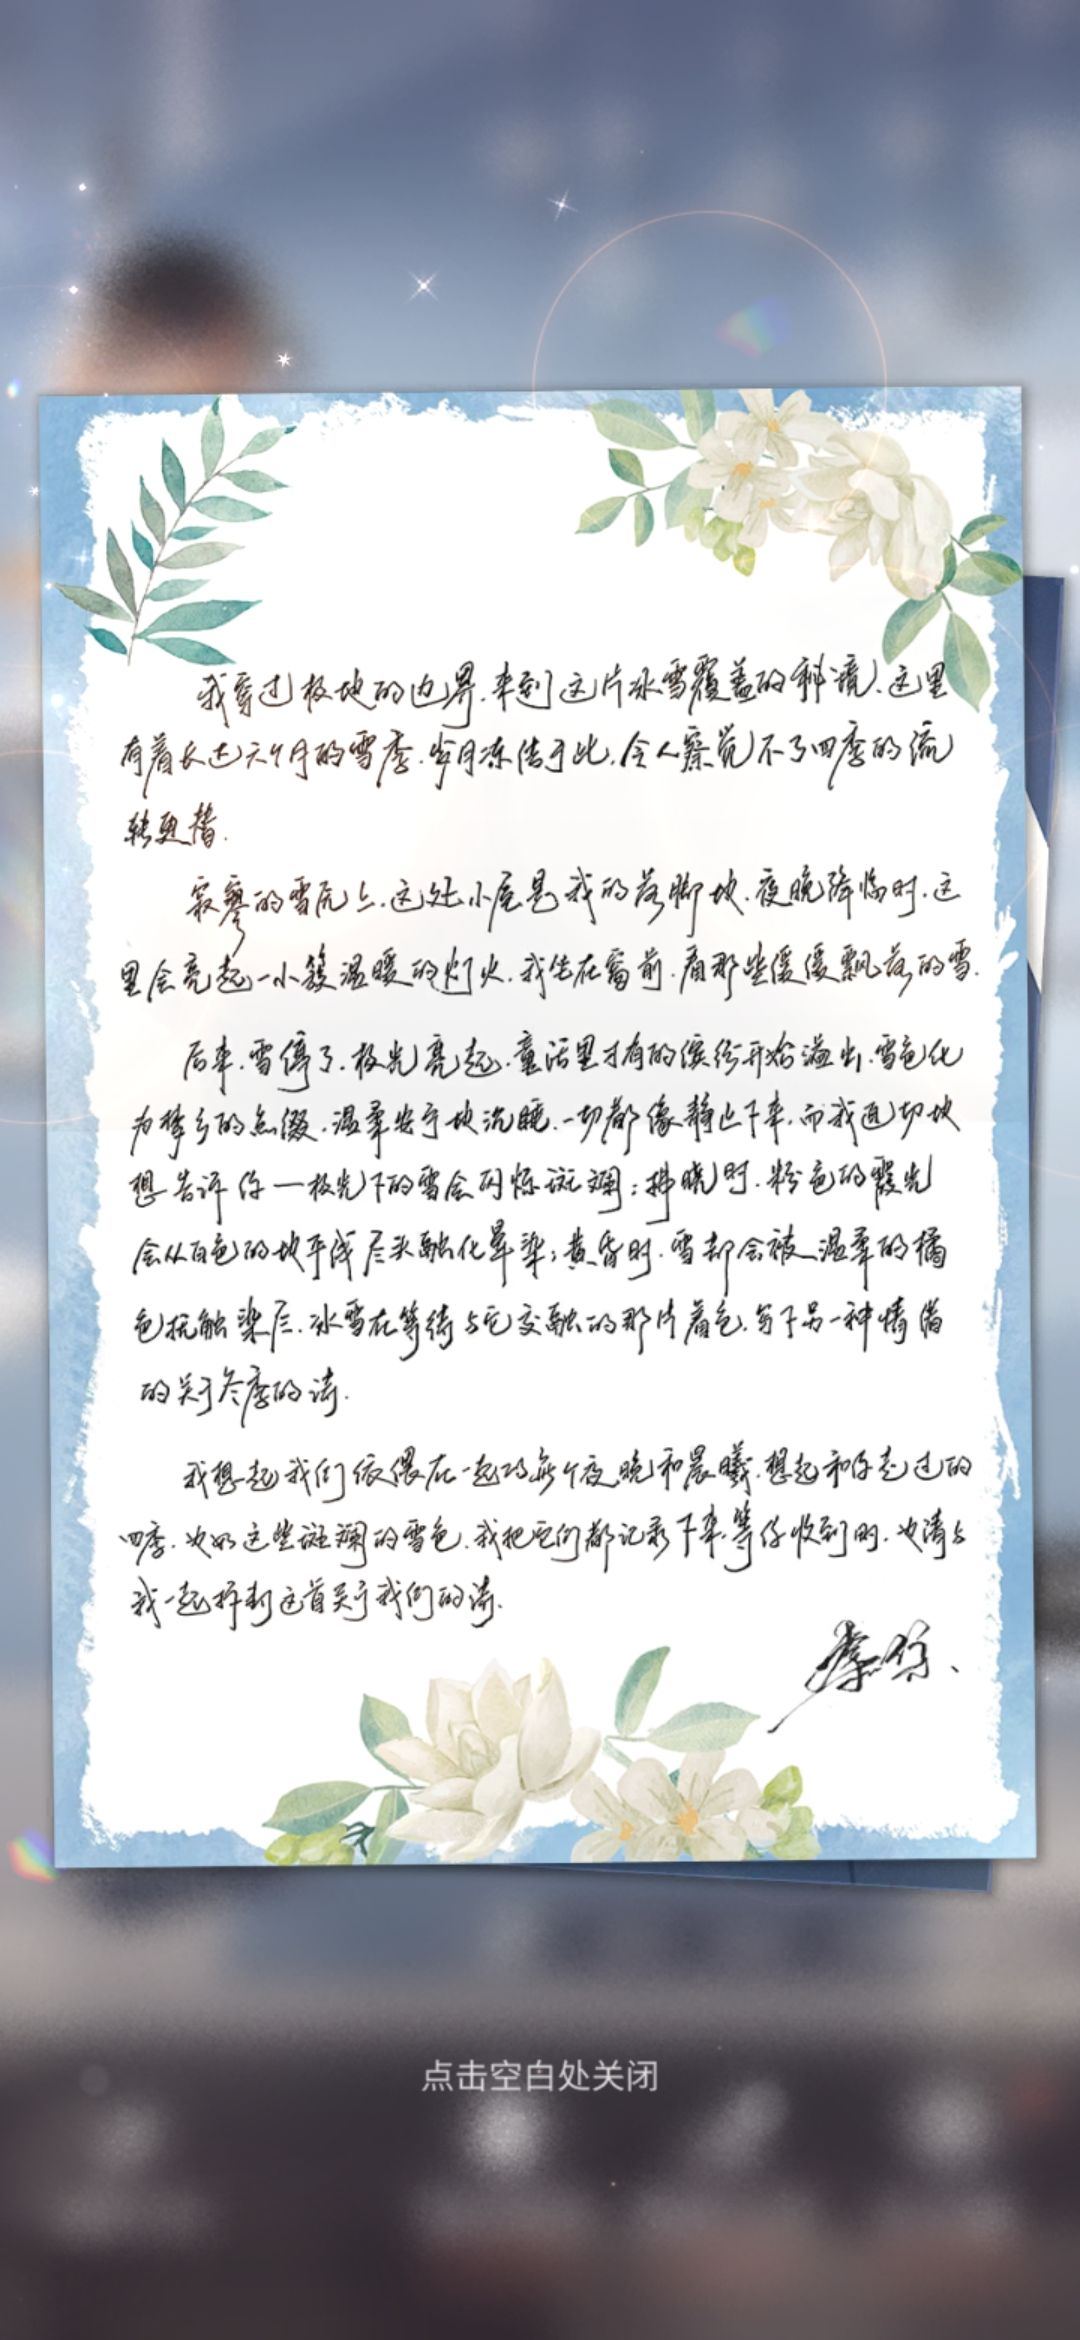 我穿过极地的边界，来到这片冰雪覆盖的秘境。这里
有着长达六个月的雪季，岁月冻结于此，令人察觉不了四季的流
转更替。
寂寥的雪原上，这处小屋是我的落脚地。夜晚降临时，这
里会亮起一小簇温暖的灯火，我坐在窗前，看那些缓缓飘落的雪。
后来，雪停了，极光亮起，童话里才有的缤纷开始溢出，雪色化
为梦乡的点缀，温柔安宁地沉睡。一切都像静止下来，而我迫切地
想告诉你——极光下的雪会闪烁斑斓；拂晓时，粉色的霞光
会从白色的地平线尽头融化晕染；黄昏时，雪却会被温柔的橘
色抚触染尽。冰雪在等待与它交融的那片着色，写下另一种情谱
的关于冬季的诗。
我想起我们依偎在一起的每个夜晚和晨曦，想起和你走过的
四季，也如这些斑斓的雪色。我把它们都记录下来，等你收到时，也请与
我一起拆封这首关于我们的诗。
点击空白处关闭